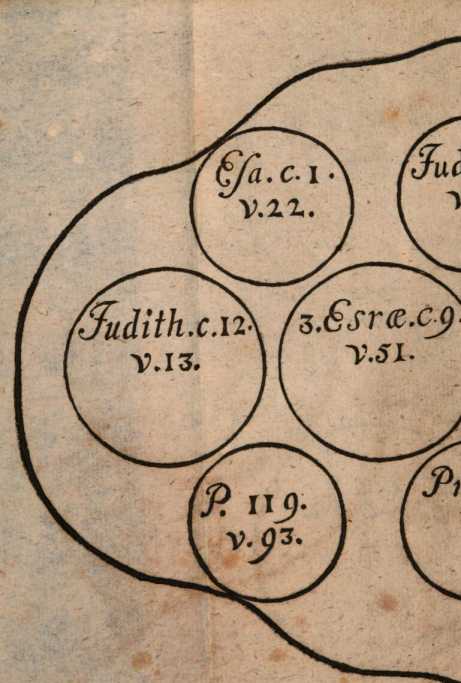 Esa. c. 1.
v. 22.
Jud
v
Judith. c. 12.
v. 13.
3. Esræ. c. 9.
v. 51.
P. 119.
v. 93.
Pr